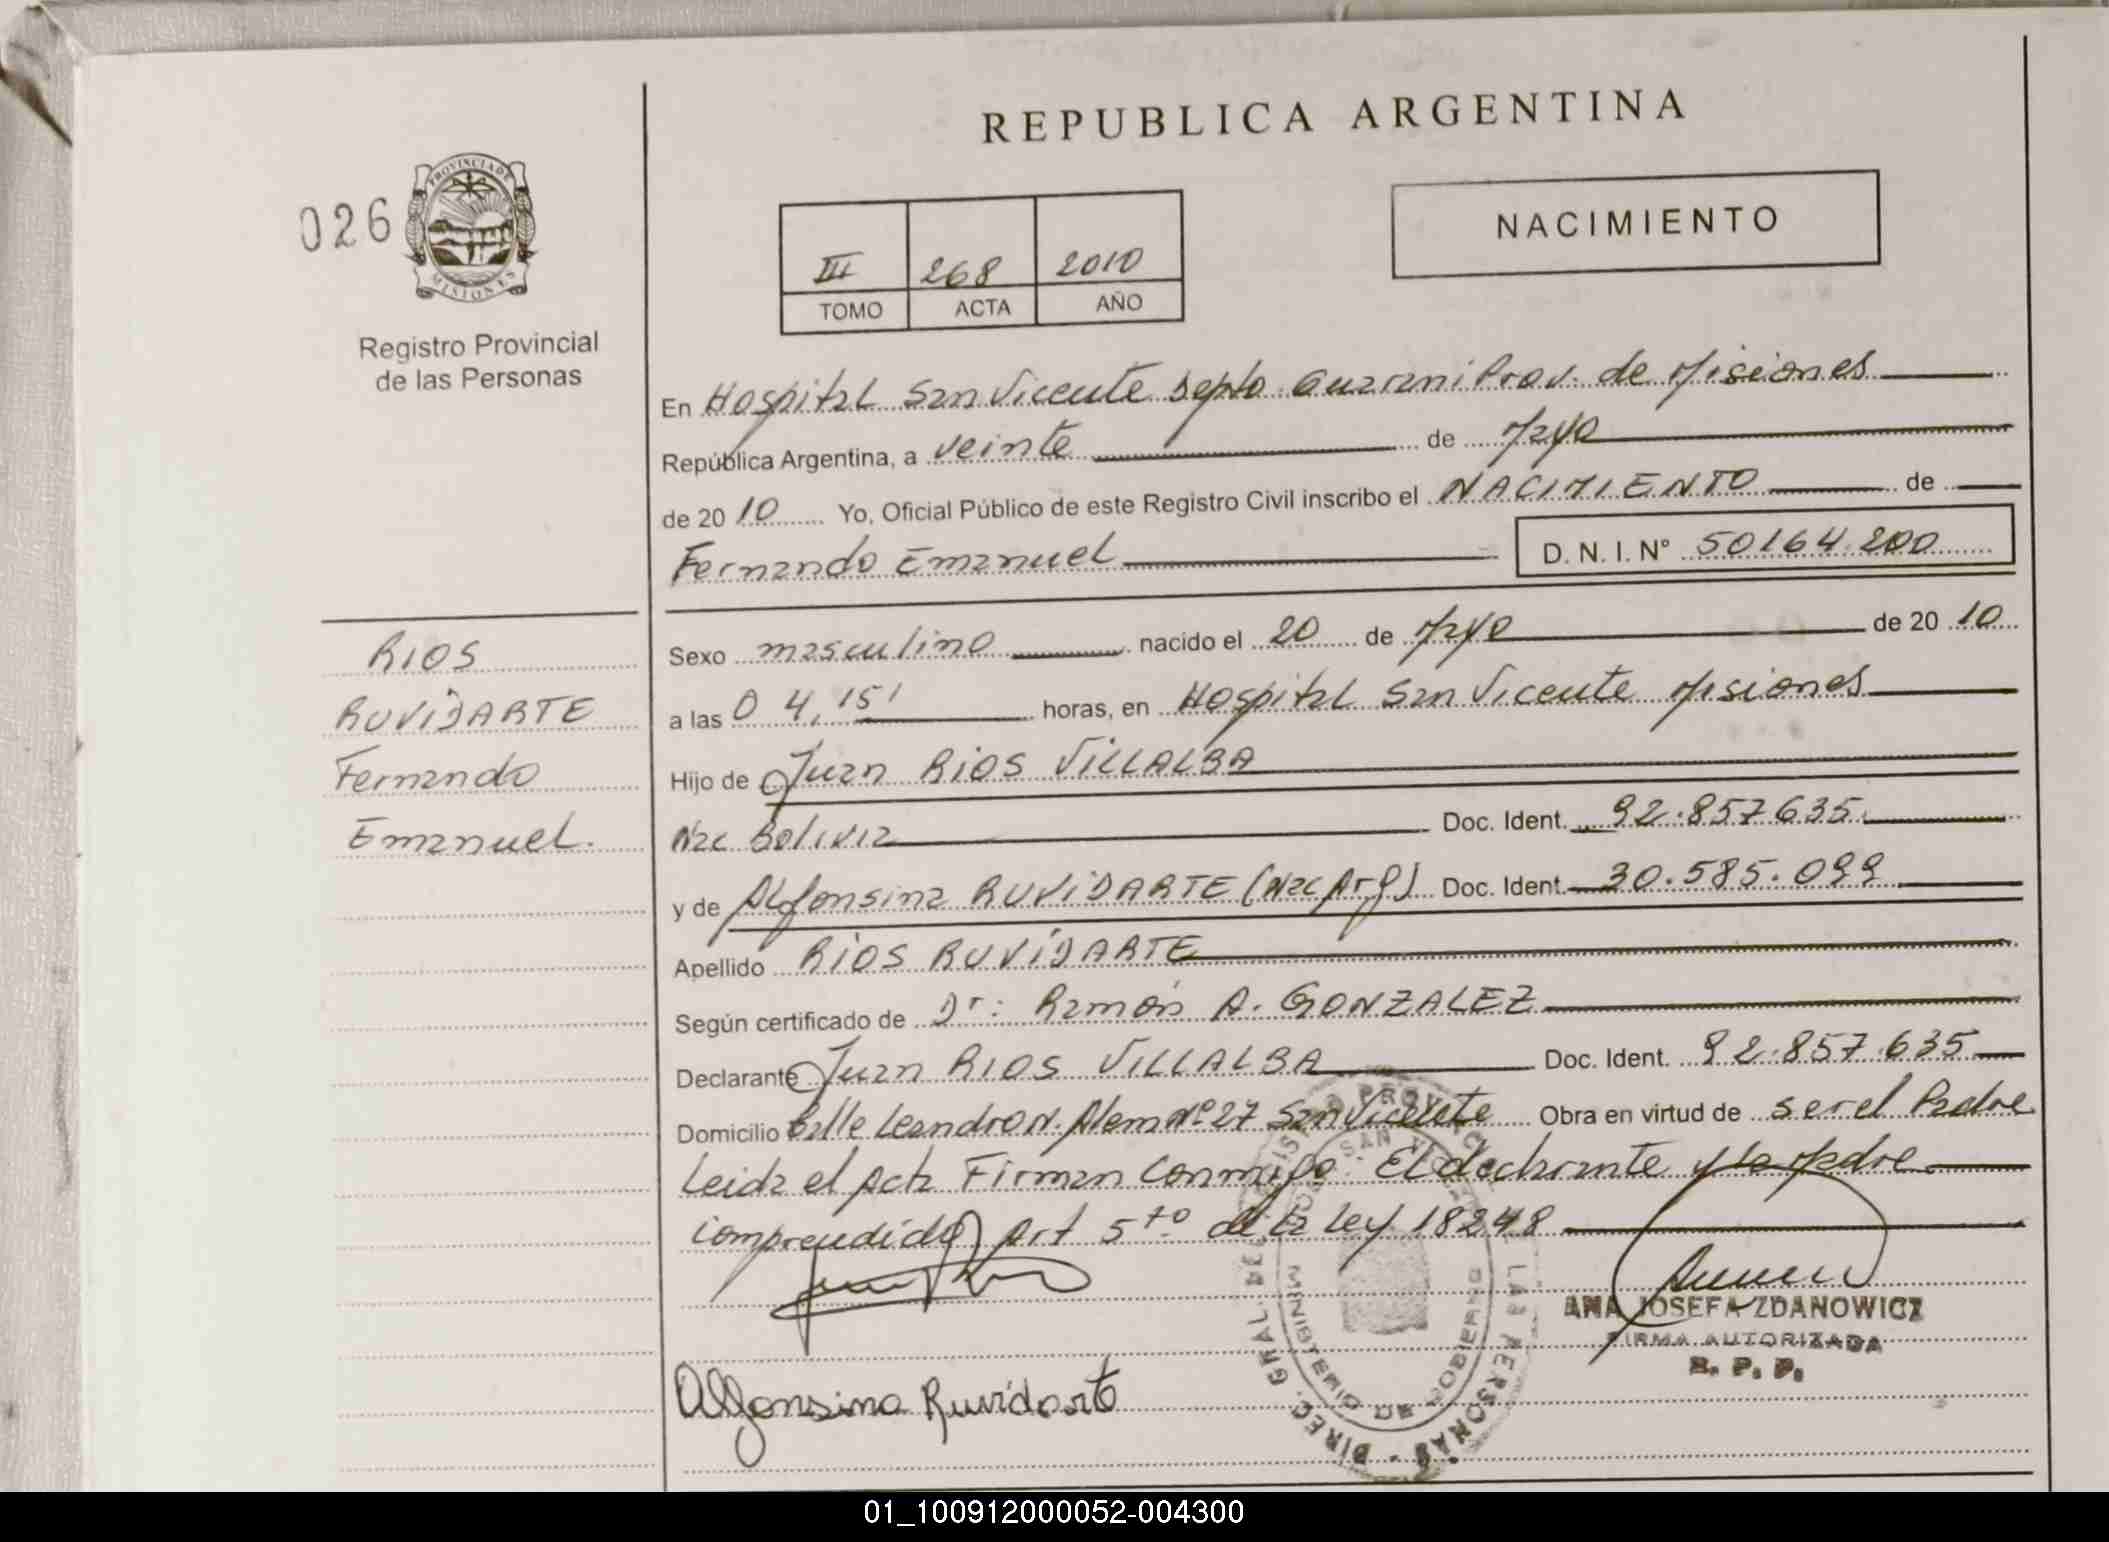 REPUBLICA ARGENTINA
026
PROVINCIA DE
MISIONES
Registro Provincial
de las Personas
III 268 2010
TOMO ACTA AÑO
NACIMIENTO
En Hospital San Vicente Depto. Guarani Prov. de Misiones
República Argentina, a veinte de Mayo
de 2010 Yo, Oficial Público de este Registro Civil inscribo el NACIMIENTO de
Fernando Emanuel D. N. I. Nº 50164.200
RIOS
RUVIDARTE
Fernando
Emanuel.
Sexo masculino nacido el 20 de Mayo de 2010
a las 04,15' horas, en Hospital San Vicente Misiones
Hijo de Juan RIOS VILLALBA
Nac Bolivia Doc. Ident. 92.857635
y de Alfonsina RUVIDARTE (Nac Arg) Doc. Ident. 30.585.099
Apellido RIOS RUVIDARTE
Según certificado de Dr: Ramón A. GONZALEZ
Declarante Juan RIOS VILLALBA Doc. Ident. 92.857.635
Domicilio Calle Leandro N. Alem Nº 27 San Vicente Obra en virtud de ser el Padre
Leida el Acta Firman Conmigo El declarante y la Madre
comprendido Art 5to de la Ley 18248
ANA JOSEFA ZDANOWICZ
FIRMA AUTORIZADA
R. P. P.
Alfonsina Ruvidarte
01_100912000052-004300